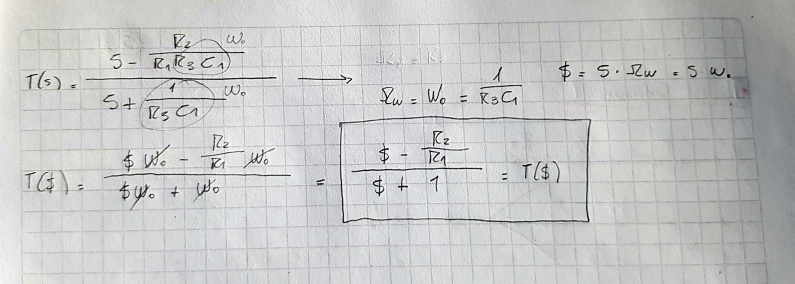 T(s) = (s - R₂/(R₁R₃C₁) ω₀) / (s + 1/(R₃C₁) ω₀) ⟶ Ωω = ω₀ = 1/(R₃C₁) $ = s · Ωω = s ω₀
T($) = ($ω₀ - R₂/R₁ ω₀) / ($ω₀ + ω₀) = ($ - R₂/R₁) / ($ + 1) = T($)